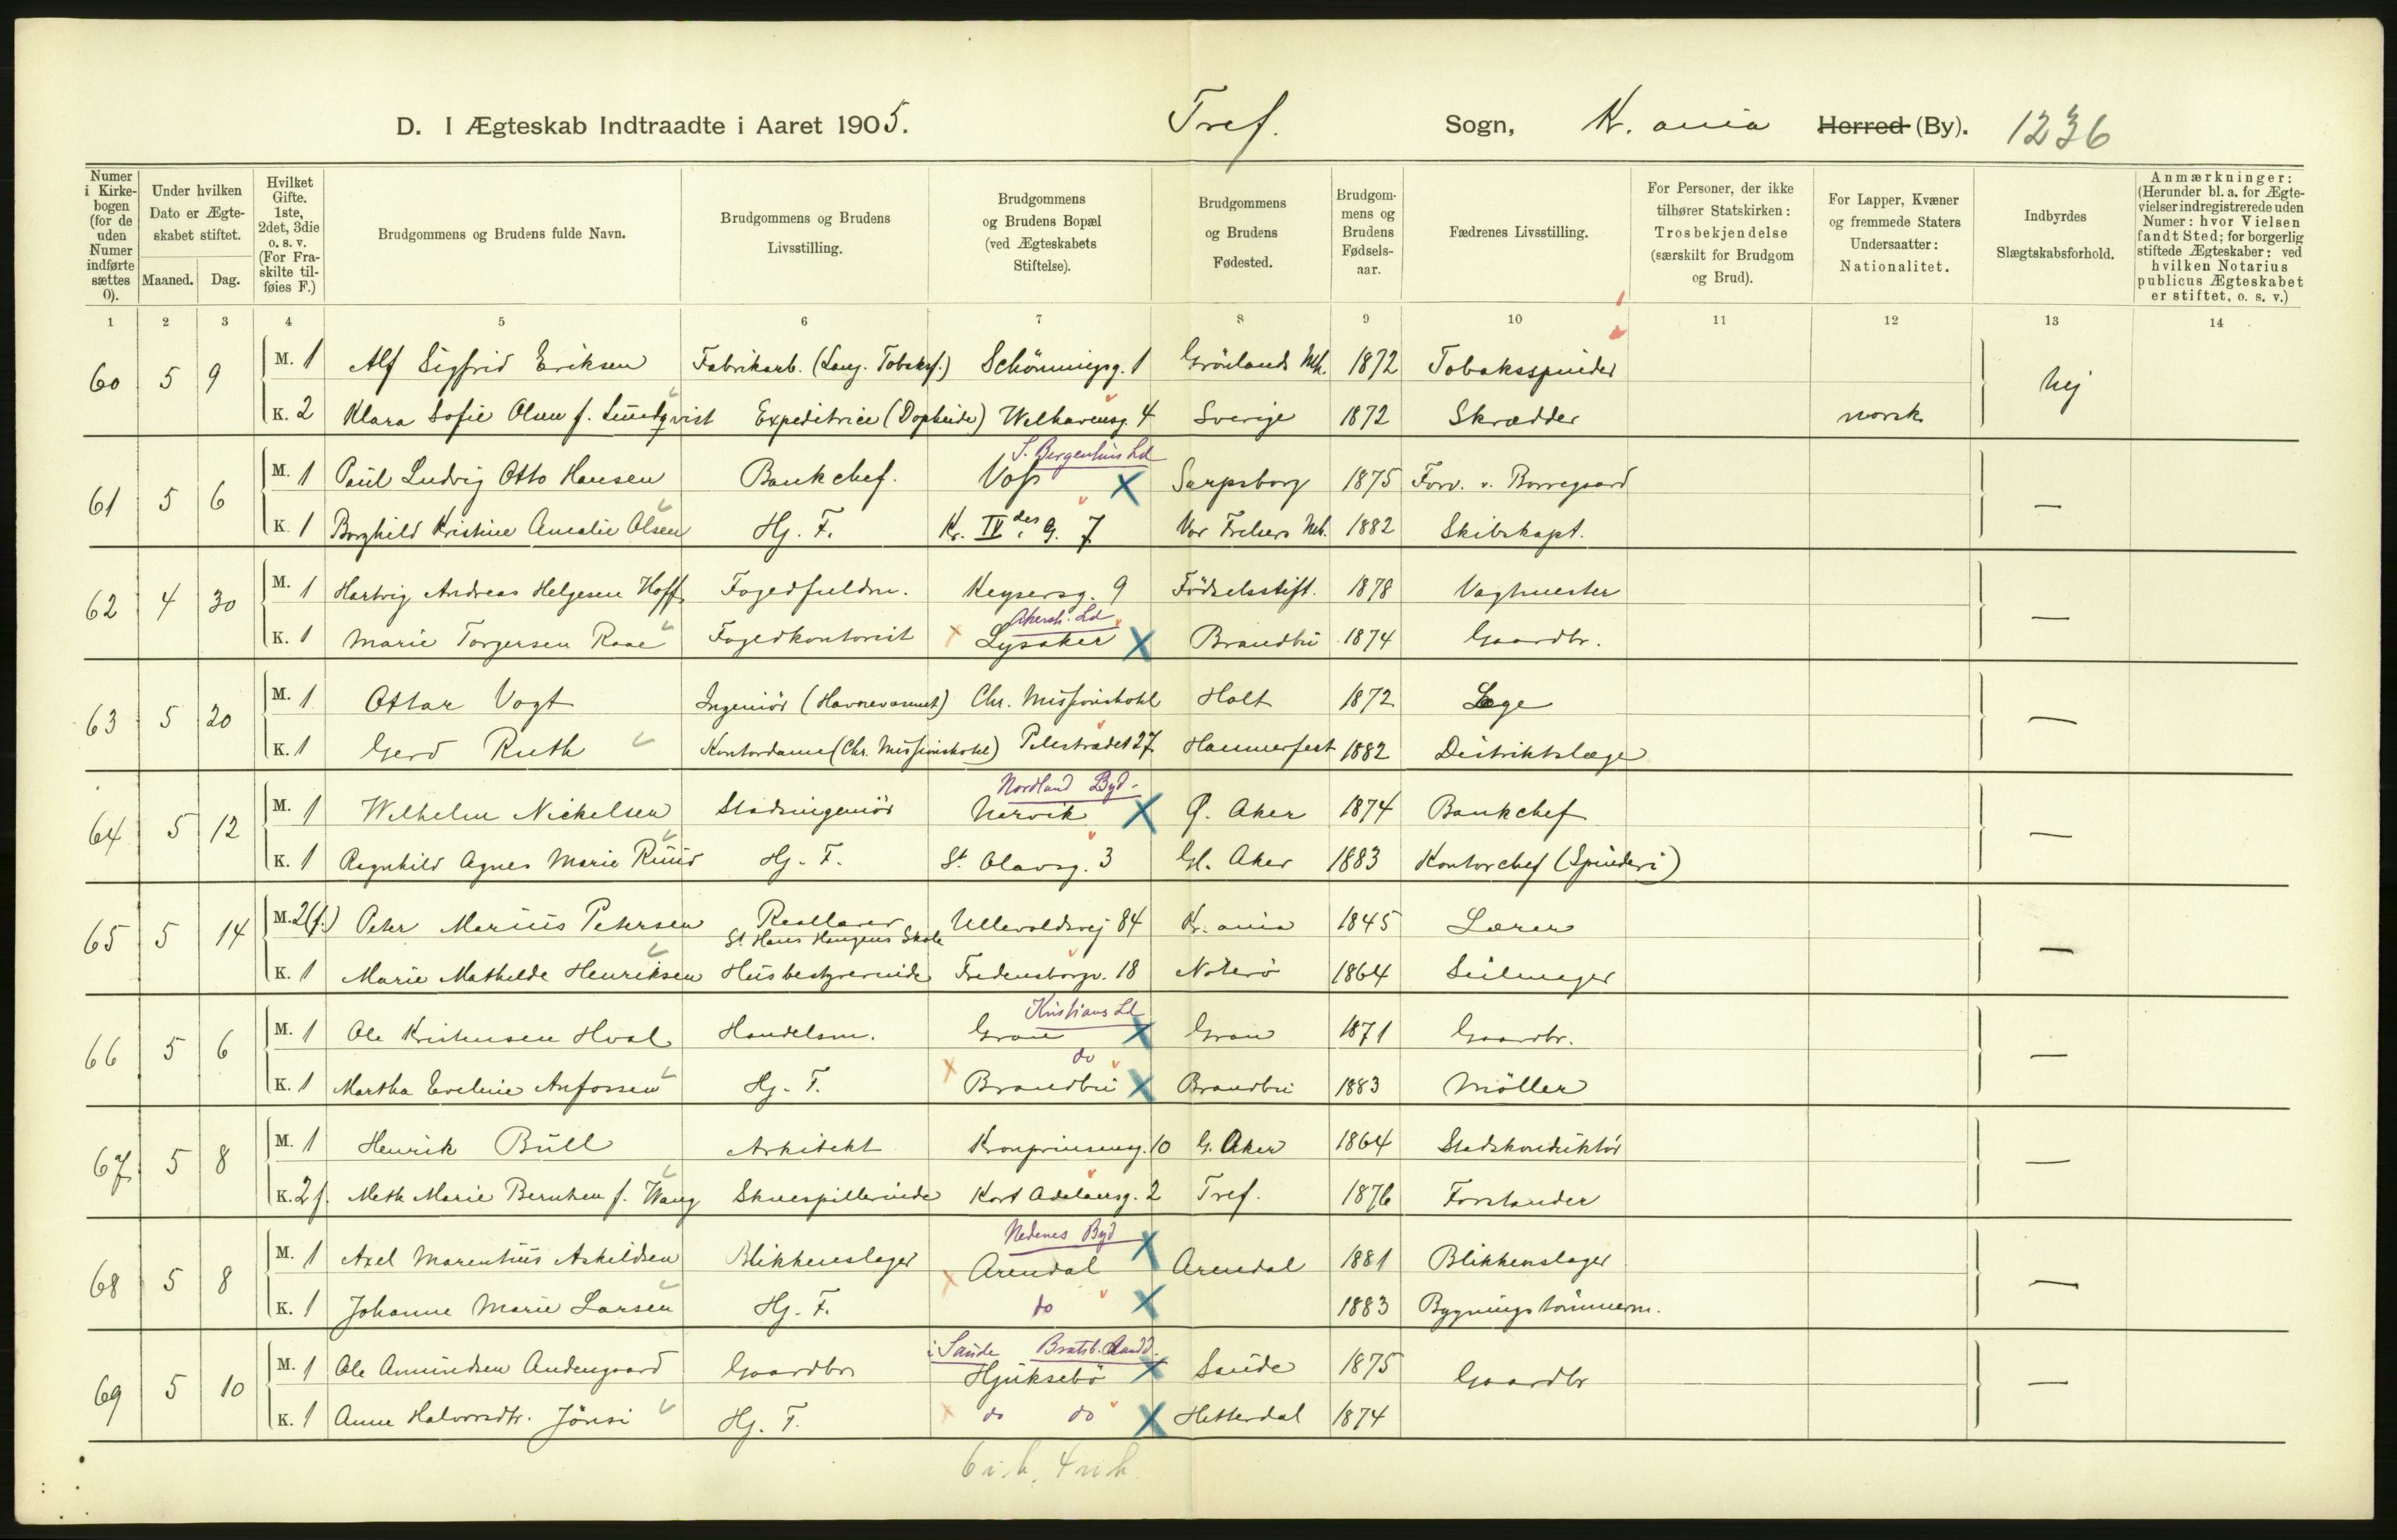 D. I Ægteskab Indtraadte i Aaret 1905. Tref. Sogn, Kr. ania Herred (By). 1236
Numer i Kirkebogen (for de uden Numer indførte sættes 0). Under hvilken Dato er Ægteskabet stiftet. Maaned. Dag. Hvilket Gifte. 1ste, 2det, 3die o. s. v. (For Fraskilte tilføies F.) Brudgommens og Brudens fulde Navn. Brudgommens og Brudens Livsstilling. Brudgommens og Brudens Bopæl (ved Ægteskabets Stiftelse). Brudgommens og Brudens Fødested. Brudgommens og Brudens Fødselsaar. Fædrenes Livsstilling. For Personer, der ikke tilhører Statskirken: Trosbekjendelse (særskilt for Brudgom og Brud). For Lapper, Kvæner og fremmede Staters Undersaatter: Nationalitet. Indbyrdes Slægtskabsforhold. Anmærkninger: (Herunder bl. a. for Ægtevielser indregistrerede uden Numer: hvor Vielsen fandt Sted; for borgerlig stiftede Ægteskaber: ved hvilken Notarius publicus Ægteskabet er stiftet, o. s. v.)
1 2 3 4 5 6 7 8 9 10 11 12 13 14
60 5 9 M. 1 Alf Sigfrid Eriksen Fabrikarb. (Lang. Tobaksf.) Schönningsg. 1 Grönlands Mh. 1872 Tobaksspinder Nej
K. 2 Klara Sofie Olsen f. Lundqvist Expeditrice Welhavensg. 4 Sverige 1872 Skrædder norsk
S. Bergenhus Ld
61 5 6 M. 1 Paul Ludvig Otto Hansen Bankchef. Voss Sarpsborg 1875 Forv. v. Borregaard —
K. 1 Borghild Kristine Amalie Olsen Hj. F. Kr. IV des G. 7 Vor Frelsers Mh. 1882 Skibskapt.
62 4 30 M. 1 Hartvig Andreas Helgesen Hoff Fogedfuldm. Keysersg. 9 Födselsstift. 1878 Vagtmester —
Akersh. Ld
K. 1 Marie Torgersen Raae Fogedkontorist Lysaker Brandbu 1874 Gaardbr.
63 5 20 M. 1 Ottar Vogt Ingeniör (Havnevæsnet) Chr. Missionshotel Holt 1872 Læge —
K. 1 Gerd Ruth Kontordame (Chr. Missionshotel) Pilestrædet 27 Hammerfest 1882 Distriktslæge
Nordland Byd.
64 5 12 M. 1 Wilhelm Nickelsen Stadsingeniör Narvik G. Aker 1874 Bankchef —
K. 1 Ragnhild Agnes Marie Ruud Hj. F. St. Olavsg. 3 Gl. Aker 1883 Kontorchef (Spinderi)
65 5 14 M. 2(f.) Peter Marius Petersen Reallærer Ullevoldsvej 84 Kr. ania 1845 Lærer —
St Hans Haugens Skole
K. 1 Marie Mathilde Henriksen Husbestyrerinde Fredensborgv. 18 Nöterö 1864 Seilmager
Kristians Ld
66 5 6 M. 1 Ole Kristensen Hval Handelsm. Gran Gran 1871 Gaardbr. —
do
K. 1 Martha Eveline Anfossen Hj. F. Brandbu Brandbu 1883 Möller
67 5 8 M. 1 Henrik Bull Arkitekt Kronprinseng. 10 G. Aker 1864 Stadskonduktör —
K. 2 f. Mette Marie Berntsen f. Wang Skuespillerinde Kort Adelersg. 2 Tref. 1876 Forstander
Nedenes Byd
68 5 8 M. 1 Axel Marentius Askildsen Blikkenslager Arendal Arendal 1881 Blikkenslager —
K. 1 Johanne Marie Larsen Hj. F. do 1883 Bygningstömmerm.
i Saude Bratsb. Landd.
69 5 10 M. 1 Ole Amundsen Andengaard Gaardbr Hjuksebö Saude 1875 Gaardbr —
K. 1 Anne Halvorsdtr. Jönsi Hj. F. do do Hitterdal 1874
6 i. h. 4 u h.